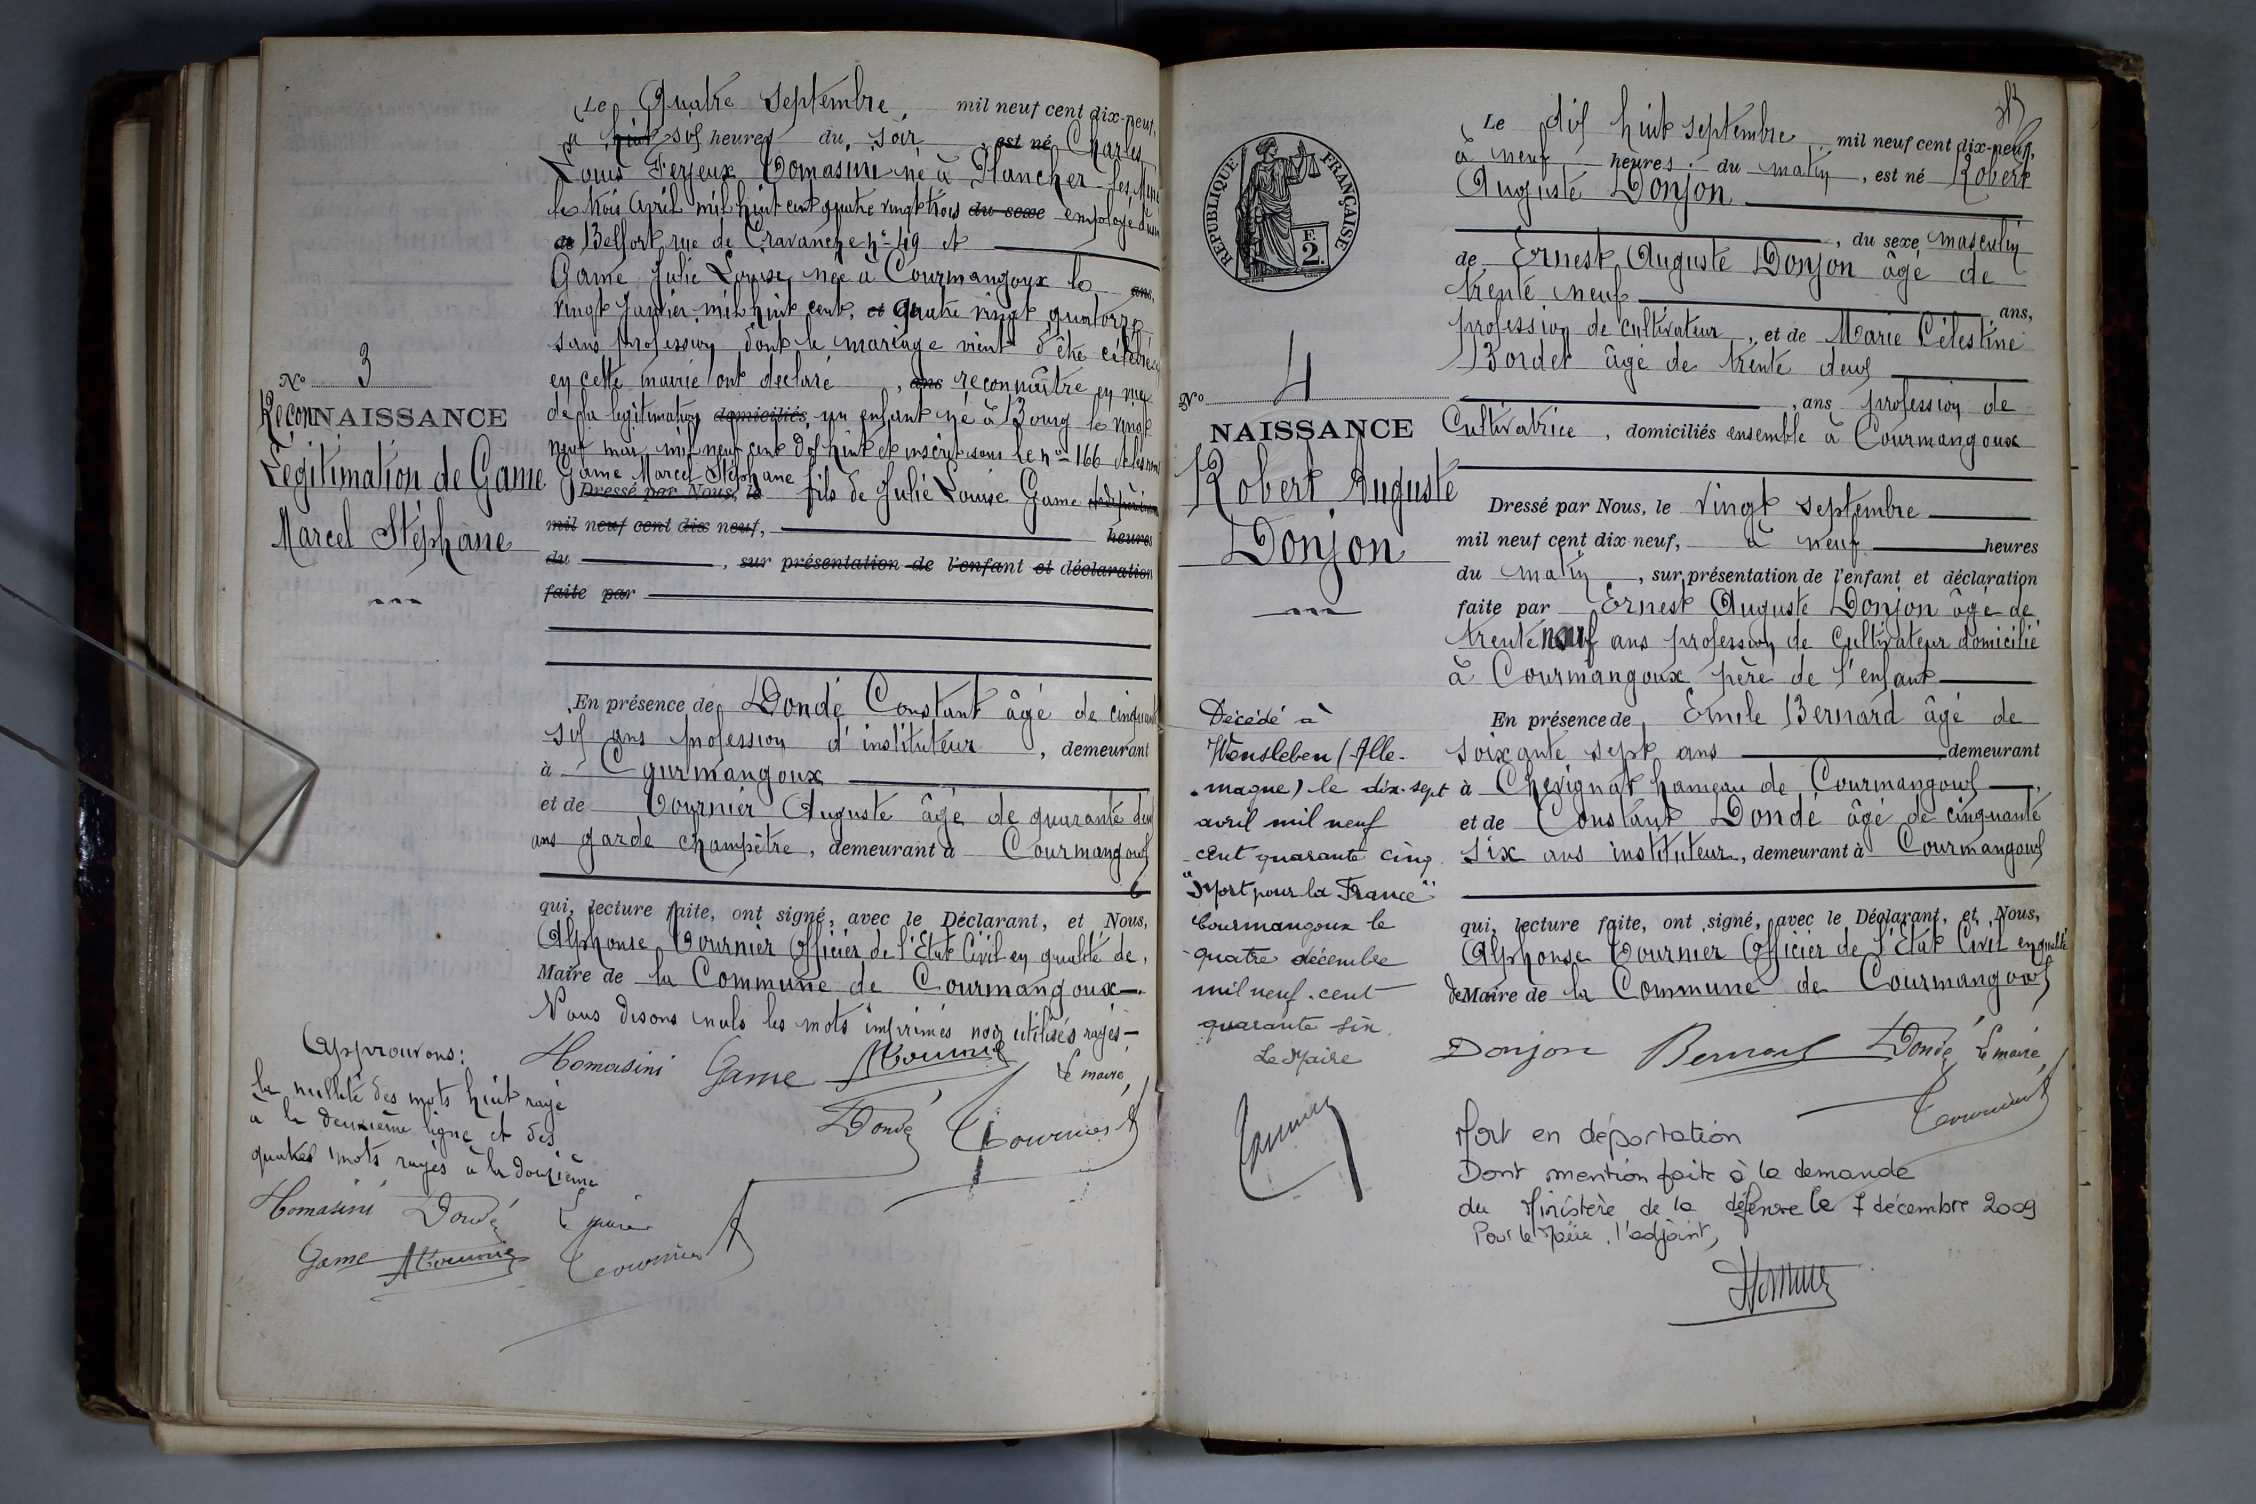 Le Quatre Septembre, mil neuf cent dix-neuf,
à huit six heures du soir, est né Charles
Louis Ferjeux Tomasini né à Plancher-les-Mines
le trois avril mil huit cent quatre vingt trois du sexe employé
de Belfort, rue de Cravanche n° 49 et
Game Julie Louise née à Courmangoux le ans,
vingt janvier mil huit cent, et quatre vingt quatorze
sans profession dont le mariage vient d'être célébré
en cette mairie ont declaré, ans reconnaître en vue
de la légitimation domiciliés, un enfant né à Bourg le vingt
neuf mai mil neuf cent dix huit et inscrit sous le n° 166
Game Marcel Stéphane
Dressé par Nous, le fils de Julie Louise Game
mil neuf cent dix neuf, heures
du , sur présentation de l'enfant et déclaration
faite par
N° 3
ReconNAISSANCE
Légitimation de Game
Marcel Stéphane
En présence de Dondé Constant âgé de cinquante
six ans profession d'instituteur, demeurant
à Courmangoux
et de Tournier Auguste âgé de quarante deux
ans garde champêtre, demeurant à Courmangoux
qui, lecture faite, ont signé, avec le Déclarant, et Nous,
Alphonse Tournier Officier de l'Etat Civil en qualité de,
Maire de la Commune de Courmangoux.
Nous disons nuls les mots imprimés non utilisés rayés
Tomasini Game ATournier Le maire,
Dondé Tournier A
Approuvons:
la nullité des mots huit rayé
à la deuxième ligne et des
quatres mots rayés à la douzième
Tomasini Dondé Le maire
Game ATournier Tournier A
Le dix huit septembre mil neuf cent dix-neuf,
à neuf heures du matin, est né Robert
Auguste Donjon
, du sexe masculin
de Ernest Auguste Donjon âgé de
trente neuf ans,
profession de cultivateur, et de Marie Célestine
Bordet âgé de trente deux
, ans profession de
Cultivatrice, domiciliés ensemble à Courmangoux
RÉPUBLIQUE FRANÇAISE
F.
2.
N° 4
NAISSANCE
Robert Auguste
Donjon
Dressé par Nous, le vingt septembre
mil neuf cent dix neuf, à neuf heures
du matin, sur présentation de l'enfant et déclaration
faite par Ernest Auguste Donjon âgé de
trente neuf ans profession de cultivateur domicilié
à Courmangoux père de l'enfant
En présence de Emile Bernard âgé de
soixante sept ans demeurant
à Chevignat hameau de Courmangoux,
et de Constant Dondé âgé de cinquante
six ans instituteur, demeurant à Courmangoux
qui, lecture faite, ont signé, avec le Déclarant, et Nous,
Alphonse Tournier Officier de l'Etat Civil en qualité
de Maire de la Commune de Courmangoux
Donjon Bernard Dondé Le maire,
Tournier A
Décédé à
Wansleben (Alle-
magne) le dix-sept
avril mil neuf
cent quarante cinq.
"Mort pour la France"
Courmangoux le
quatre décembre
mil neuf-cent
quarante six.
Le Maire
Mort en déportation
Dont mention faite à la demande
du Ministère de la défense le 7 décembre 2009
Pour le Maire, l'adjoint,